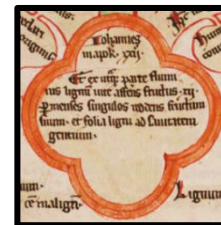 Iohannes
in apok. xxij.
Et ex utraq; parte flumi
nis lignū vite afferēs fructus. xij.
p menses singulos reddens fructum
suum. et folia ligni ad sanitatem
gentium.
Lignum